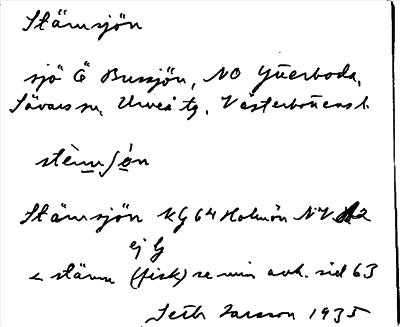 Stämsjön
sjö Ö Bussjön, NO Ytterboda,
Sävars sn, Umeå tg, Västerbottens l.
stèmʃón
Stämsjön KG 64 Holmön NV 2
ej G
< stäm (fisk) se min avh. sid 63
Seth Larsson 1935